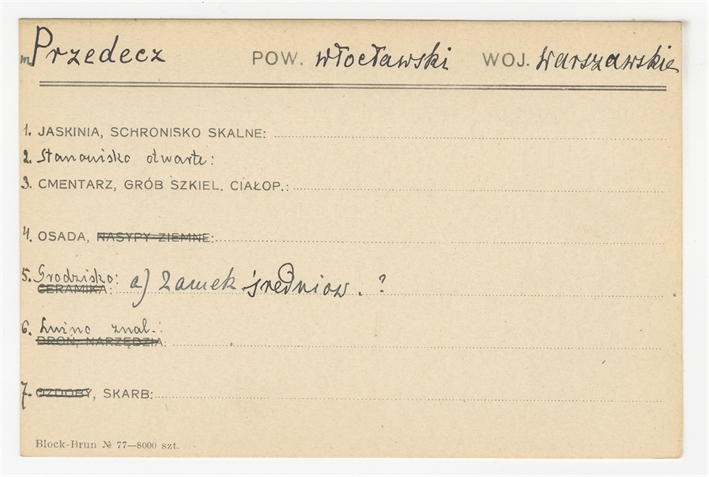 m Przedecz POW. włocławski WOJ. Warszawskie
1. JASKINIA, SCHRONISKO SKALNE:
2. Stanowisko otwarte:
3. CMENTARZ, GRÓB SZKIEL. CIAŁOP.:
4. OSADA, NASYPY ZIEMNE:
5. Grodzisko: a) Zamek średniow. ?
CERAMIKA:
6. Luźno znal.:
BROŃ, NARZĘDZIA:
7. OZDOBY, SKARB:
Block-Brun № 77—8000 szt.